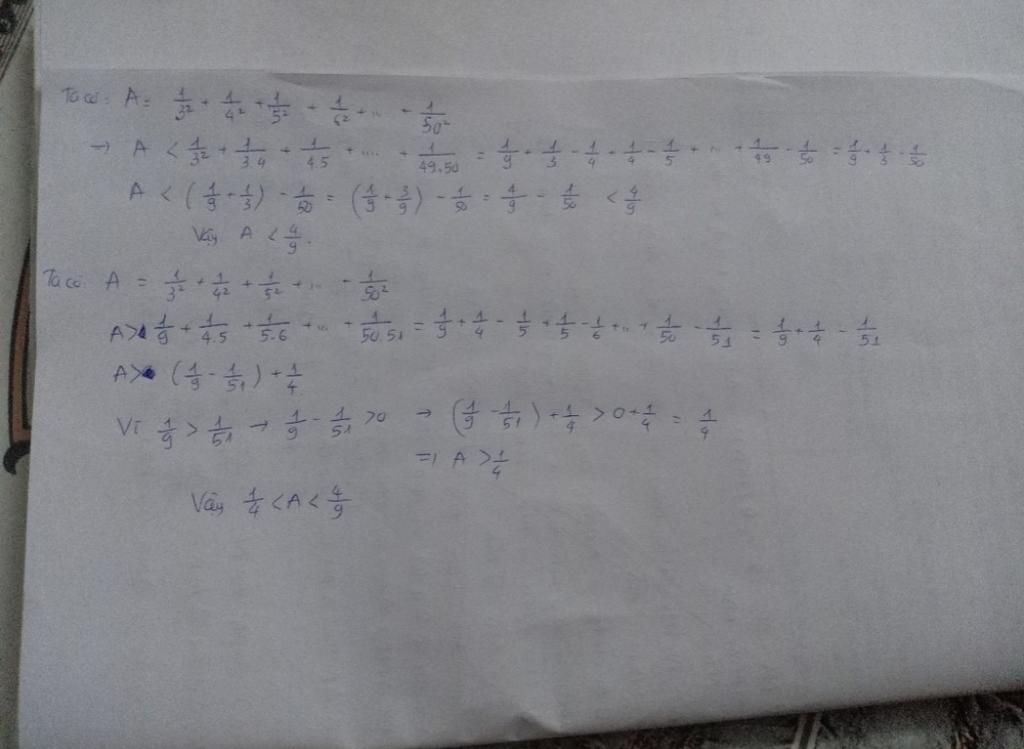 Ta có: A = 1/3² + 1/4² + 1/5² + 1/6² + ... + 1/50²
→ A < 1/3² + 1/3.4 + 1/4.5 + .... + 1/49.50 = 1/9 + 1/3 - 1/4 + 1/4 - 1/5 + ... + 1/49 - 1/50 = 1/9 + 1/3 - 1/50
A < (1/9 + 1/3) - 1/50 = (1/9 + 3/9) - 1/50 = 4/9 - 1/50 < 4/9
Vậy A < 4/9.
Ta có: A = 1/3² + 1/4² + 1/5² + ... + 1/50²
A > 1/9 + 1/4.5 + 1/5.6 + ... + 1/50.51 = 1/9 + 1/4 - 1/5 + 1/5 - 1/6 + ... + 1/50 - 1/51 = 1/9 + 1/4 - 1/51
A > (1/9 - 1/51) + 1/4
Vì 1/9 > 1/51 → 1/9 - 1/51 > 0 → (1/9 - 1/51) + 1/4 > 0 + 1/4 = 1/4
=> A > 1/4
Vậy 1/4 < A < 4/9